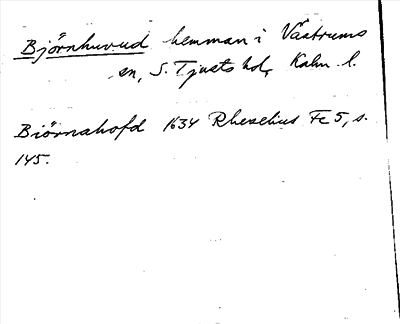 Björnhuvud hemman i Västrums
sn, S. Tjusts hd, Kalm. l.
Biörnahofd 1634 Rhezelius Fc 5, s.
145.